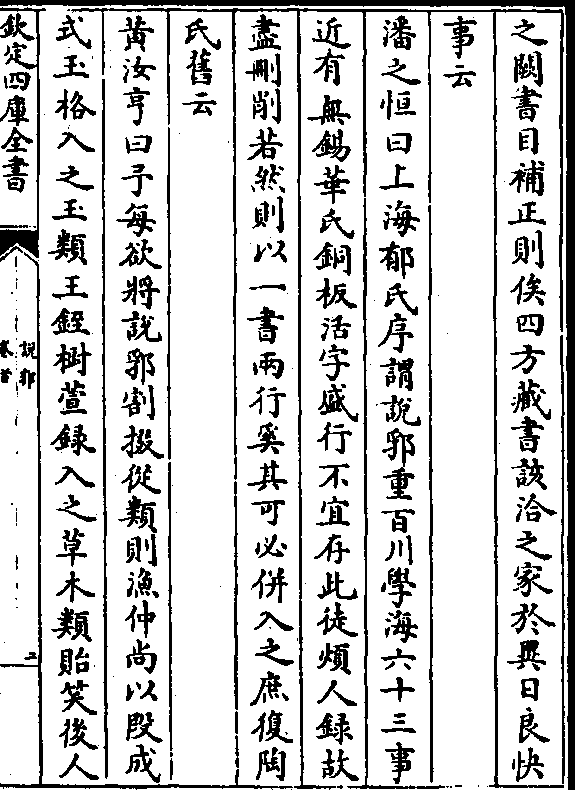 之闕書目補正則俟四方藏書該洽之家於異日良快
事云
潘之恒曰上海郁氏序謂說郛重百川學海六十三事
近有無錫華氏銅板活字盛行不宜存此徒煩人録故
盡刪削若然則以一書兩行奚其可必併入之庶復陶
氏舊云
黄汝亨曰予每欲將說郛割掇從類則漁仲尚以段成
式玉格入之玉類王銍樹萱録入之草木類貽笑後人
欽定四庫全書
說郛
卷首
二